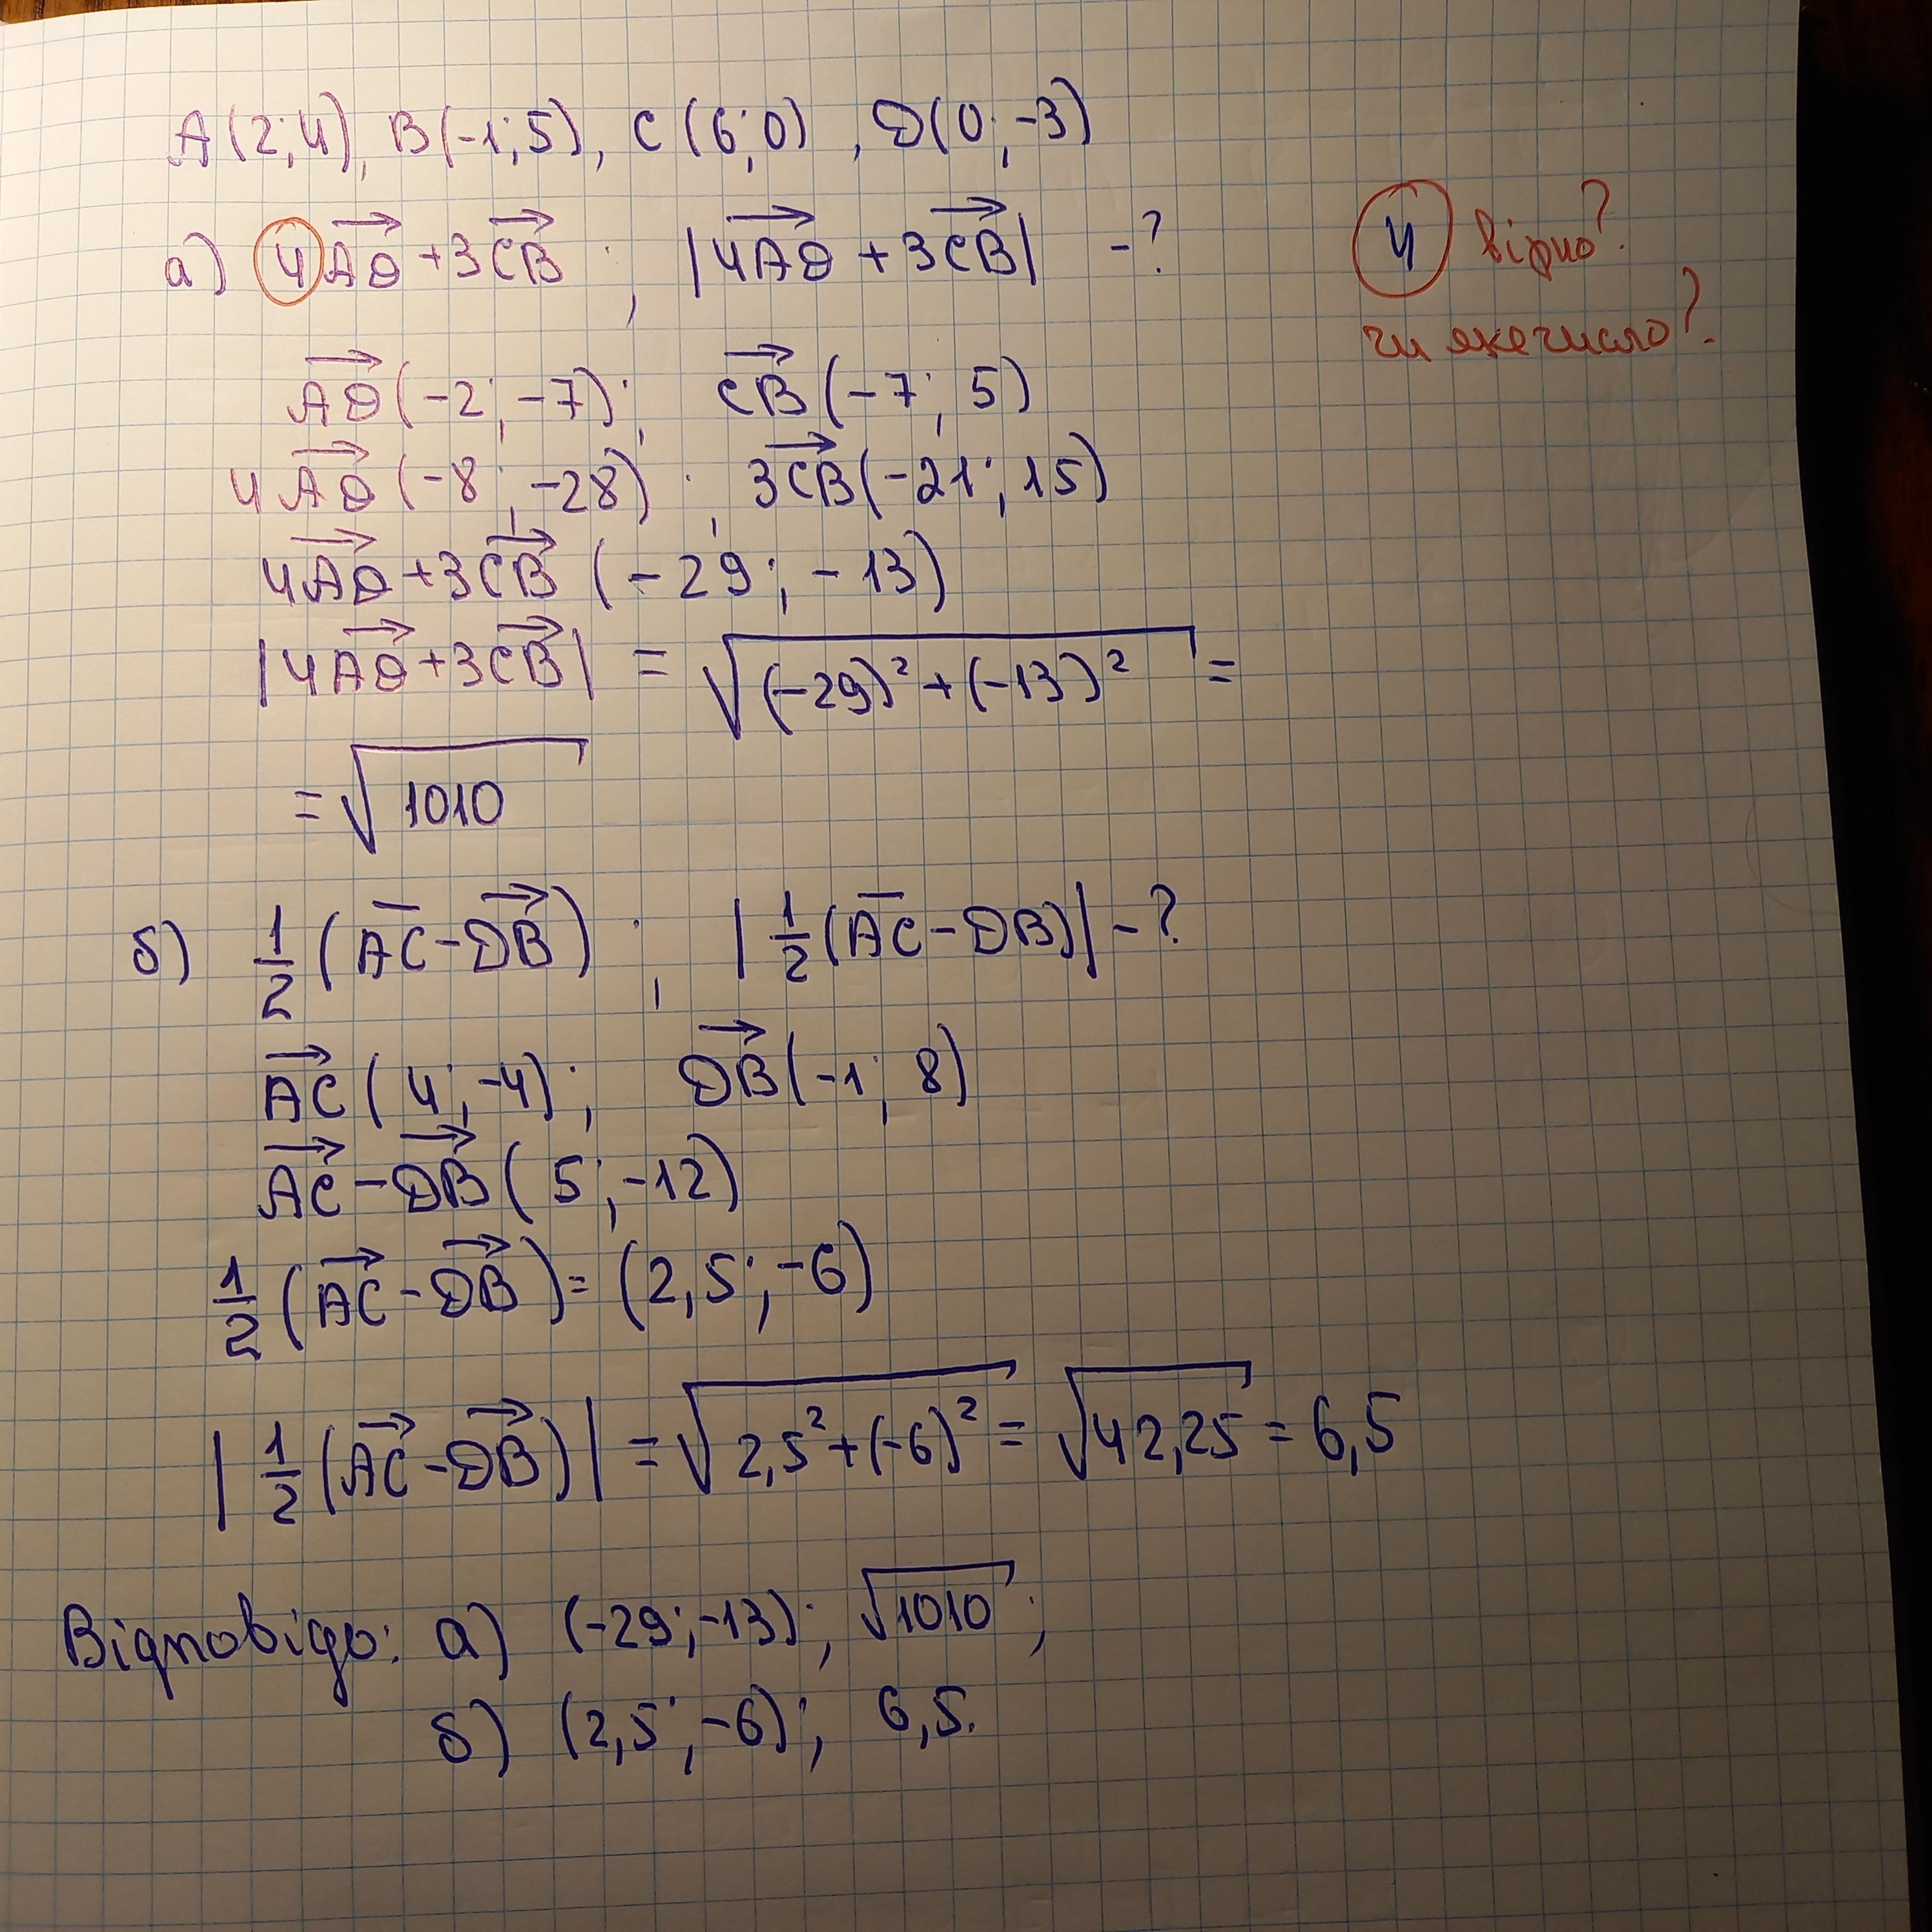 A(2;4), B(-1;5), C(6;0), D(0;-3)
a) 4AD + 3CB ; |4AD + 3CB| - ?
4 вірно?
чи яке число?
AD(-2;-7); CB(-7;5)
4AD(-8;-28); 3CB(-21;15)
4AD+3CB(-29;-13)
|4AD+3CB| = √((-29)²+(-13)²) =
= √1010
б) 1/2(AC-DB); |1/2(AC-DB)| - ?
AC(4;-4); DB(-1;8)
AC-DB(5;-12)
1/2(AC-DB)=(2,5;-6)
|1/2(AC-DB)| = √(2,5²+(-6)²) = √42,25 = 6,5
Відповідь: а) (-29;-13); √1010;
б) (2,5;-6); 6,5.